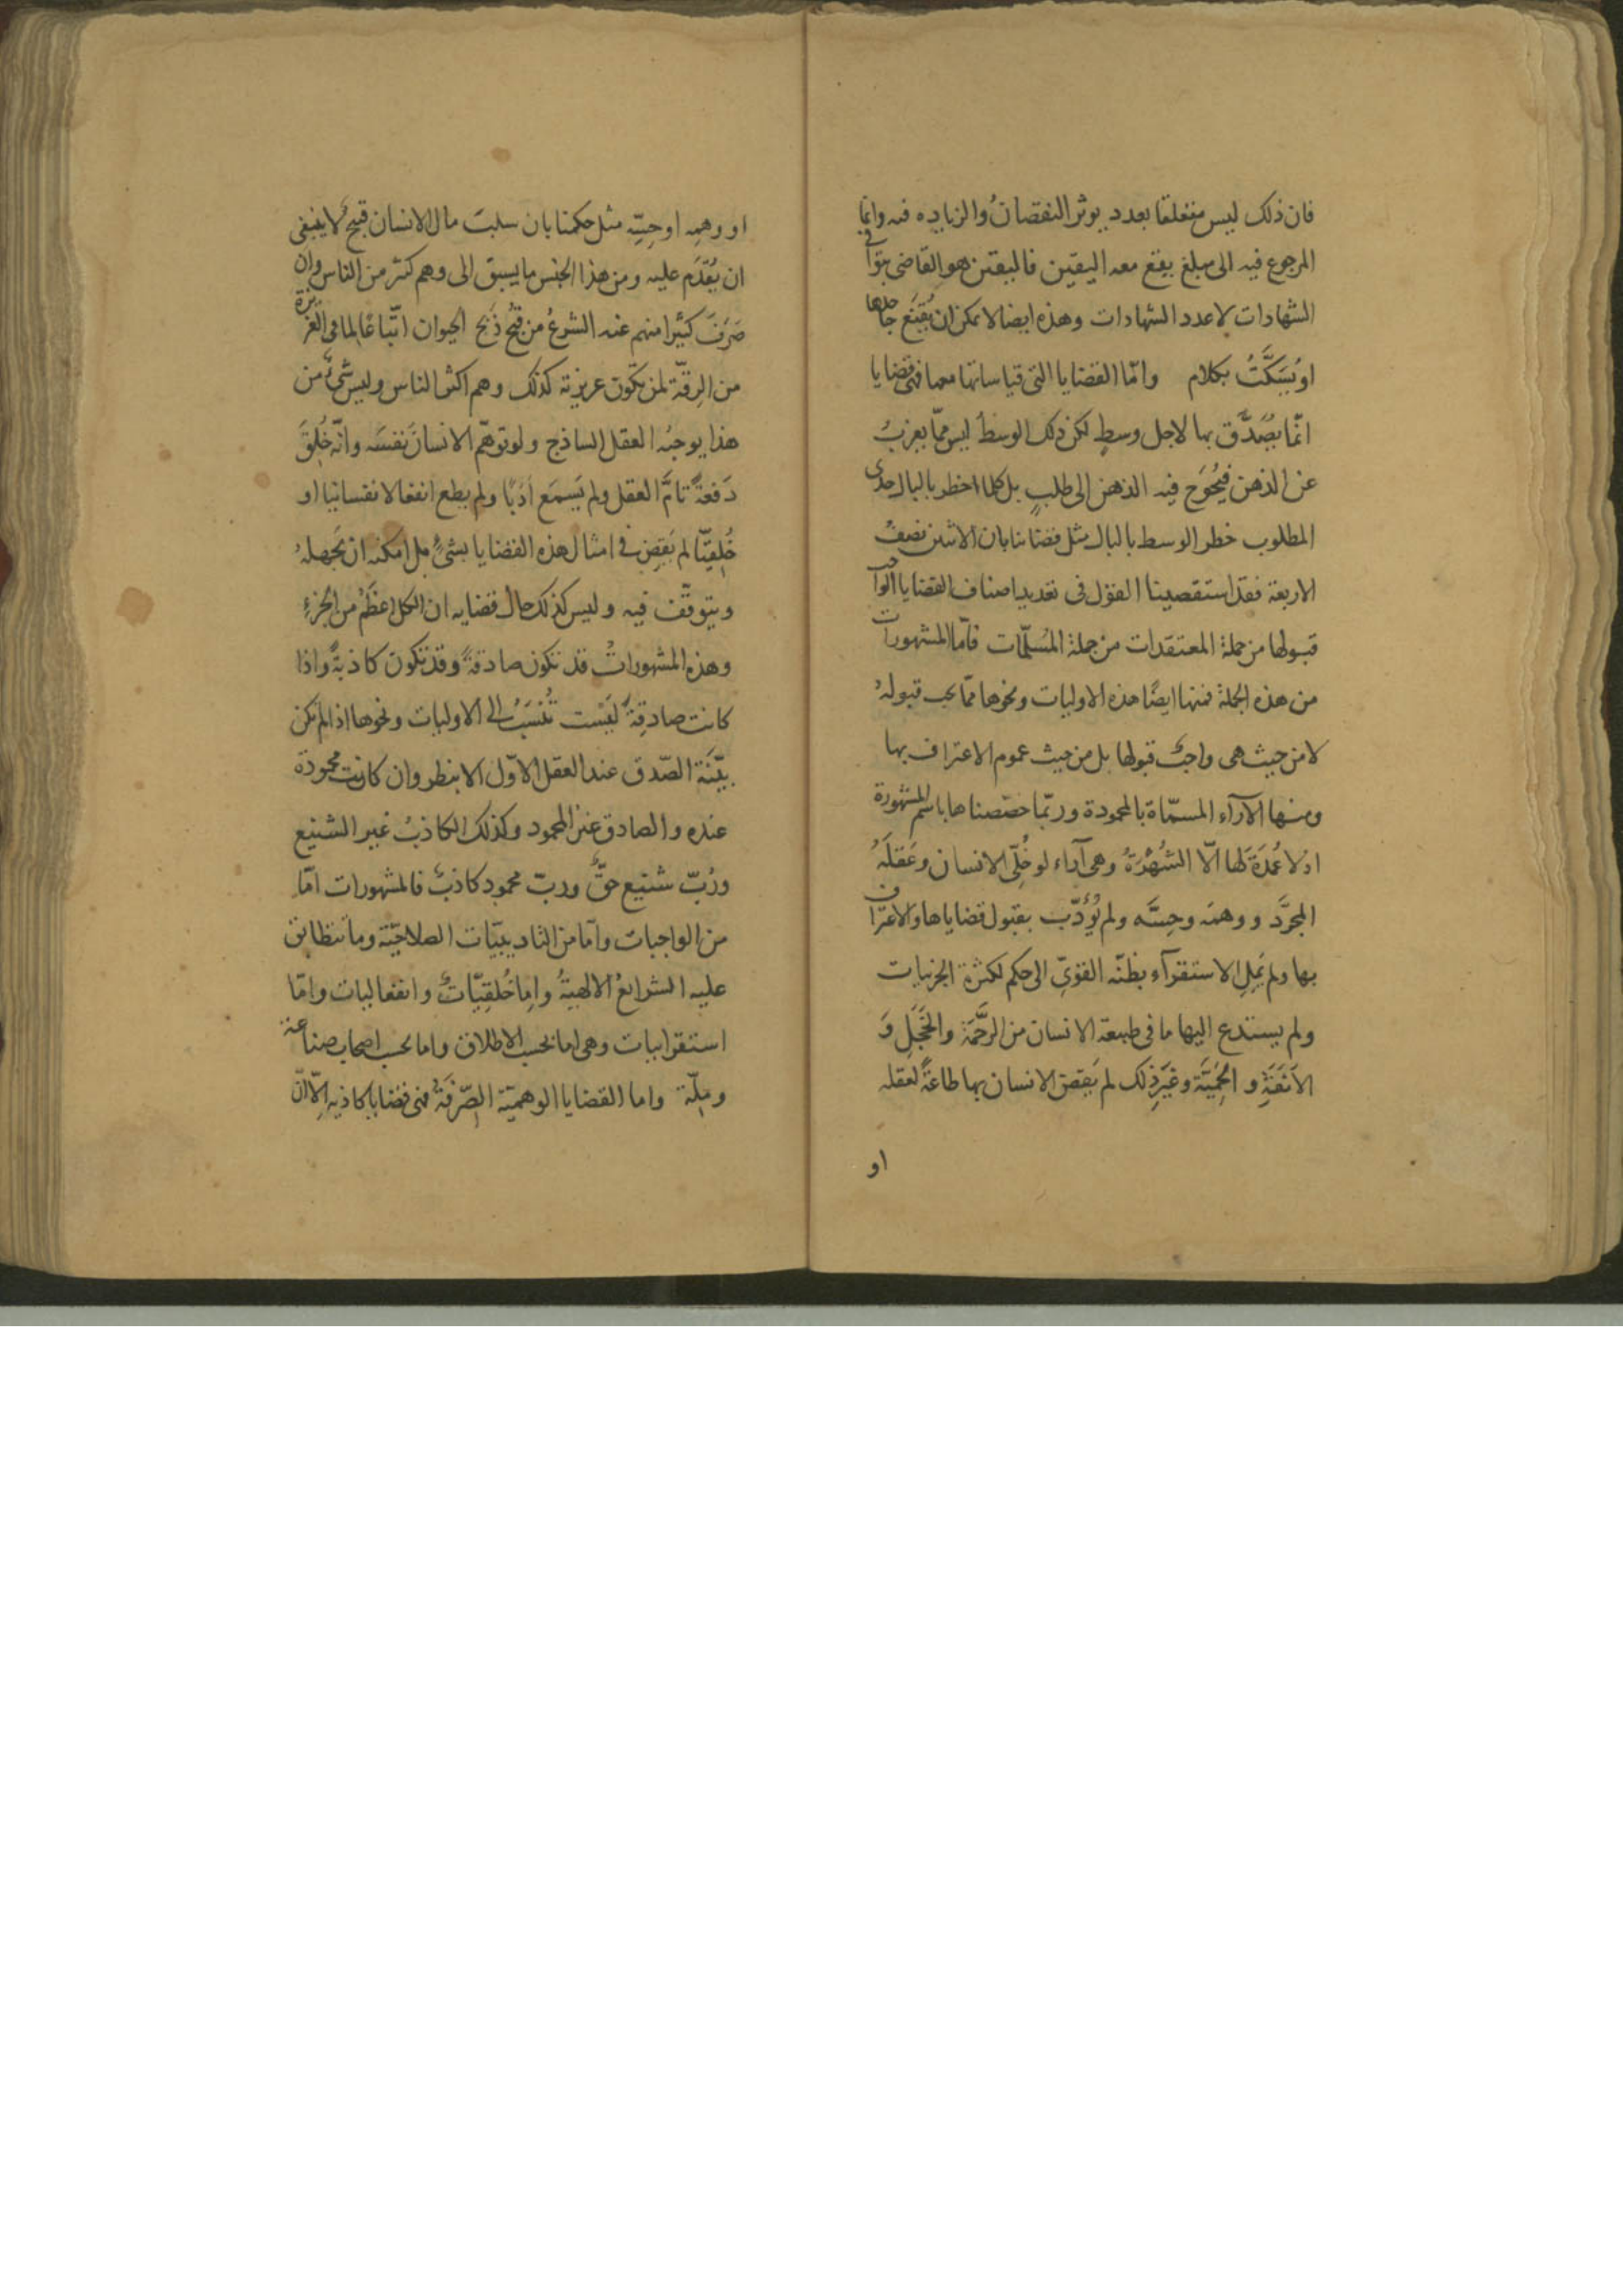 فان ذلك ليس متعلقا بعدد يوثر النقصانُ والزياده فيه وانما
المرجوع فيه الى مبلغ يقع معه اليقين فاليقين هو القاضى بتوافى
الشهادات لا عدد الشهادات وهذه ايضا لا يمكن ان يُقنَع جاحدها
او يُسَكَّتُ بكلام وامّا القضايا التى قياساتها معها فهى قضايا
انّما يُصَدَّق بها لاجل وسطٍ لكن ذلك الوسطُ ليس ممّا يعزبُ
عن الذهن فيُحوَج فيه الذهن الى طلبٍ بل كلما اخطر بالبال حدى
المطلوب خطر الوسط بالبال مثل قضائنا بان الاثنين نصفُ
الاربعة فقد استقصينا القول فى تعديد اصناف القضايا الواجب
قبولها من جملة المعتقدات من جملة المُسلّمات فامّا المشهورات
من هذه الجملة فمنها ايضًا هذه الاوليات ونحوها ممّا يجب قبولهُ
لا من حيث هى واجبٌ قبولها بل من حيث عموم الاعتراف بها
ومنها الآراء المسمّاة بالمحمودة وربّما خصّصناها باسم المشهورة
اذ لا عُمدَةَ لَها الّا الشُهْرَةُ وهى آراء لو خُلّى الانسان وعَقلَهُ
المجرَّد ووهمَه وحِسَّه ولم يُؤدّب بقبول قضاياها والاعتراف
بها ولم يَمِلِ الاستقرآء بظنّه القوىّ الى حكم لكثرة الجزئيات
ولم يستدع اليها ما فى طبيعة الانسان من الرَّحْمَة والخَجَلِ وَ
الاَنَفَةِ و الحَمِيَّةَ وغَيرِ ذلك لم يَقضِ الانسان بها طاعةً لعقله
او
او وهمِه او حِسِّه مثل حكمنا بان سلبَ مال الانسان قبيحٌ لا ينبغى
ان يُقدَم عليه ومن هذا الجنس ما يسبق الى وهم كثير من الناس وان
صَرَفَ كثيرا منهم عنه الشرعُ من قُبح ذَبح الحيوان اتّباعًا لما فى الغريزة
من الرِقّة لمن يكون غريزته كذلك وهم اكثر الناس وليس شىءٌ من
هذا يوجبُه العقل الساذج ولو توهّم الانسانُ نفسَه وانّه خُلِقَ
دَفعةً تامَّ العقل ولم يَسمَع اَدَبًا ولم يطع انفعالا نفسانيا او
خُلقِيّا لم يَقضِ فى امثال هذه القضايا بشىءٍ بل امكنه ان يجهلهُ
ويتوقّف فيه وليس كذلك حال قضايه ان الكل اعظَمُ من الجزءِ
وهذه المشهوراتُ قد تكون صادقةً وقد تكون كاذبةً واذا
كانت صادقةً لَيْست تُنْسَبُ الى الاوليات ونحوها اذا لم تكن
بيّنَة الصّدق عند العقل الاوّل الا بنظر وان كانت محمودة
عنده والصادق غير المحمود وكذلك الكاذبُ غير الشنيع
ورُبّ شنيع حقٌّ وربّ محمود كاذبٌ فالمشهورات امّا
من الواجبات وامّا من التاديبيّات الصلاحيّة وما تتطابق
عليه الشرائعُ الالهيةُ وامّا خُلقِيّاتٌ وانفعاليات وامّا
استقرائيات وهى اما بحسب الاطلاق واما بحسب اصحاب صناعة
ومِلّة واما القضايا الوهميّة الصّرفَةُ فهى قضايا كاذبه الّا انّ